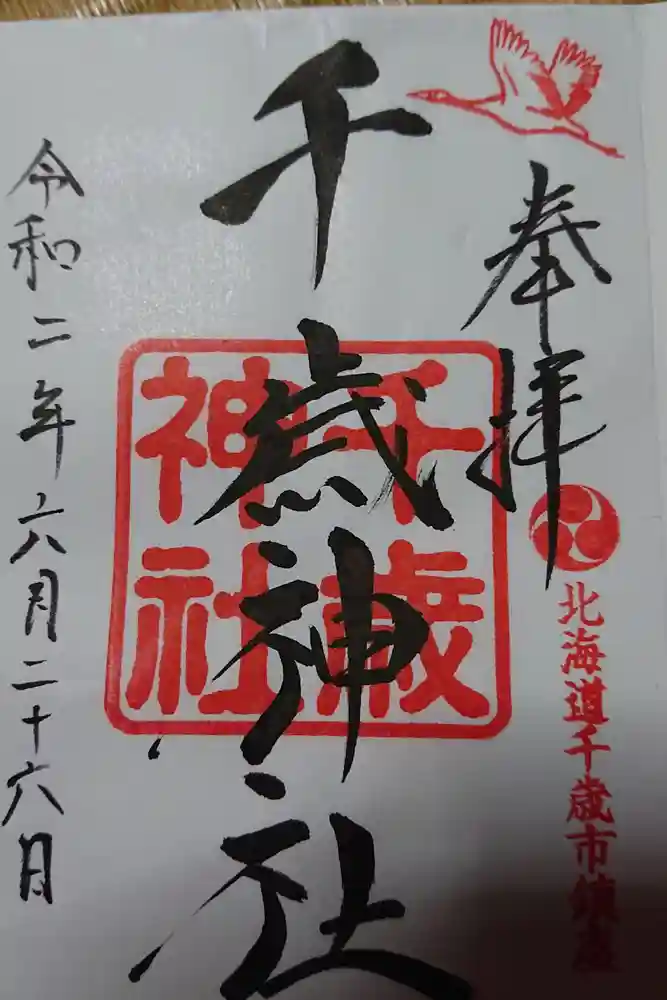 奉拝
北海道千歳市鎮座
千歳神社
千歳
神社
令和二年六月二十六月